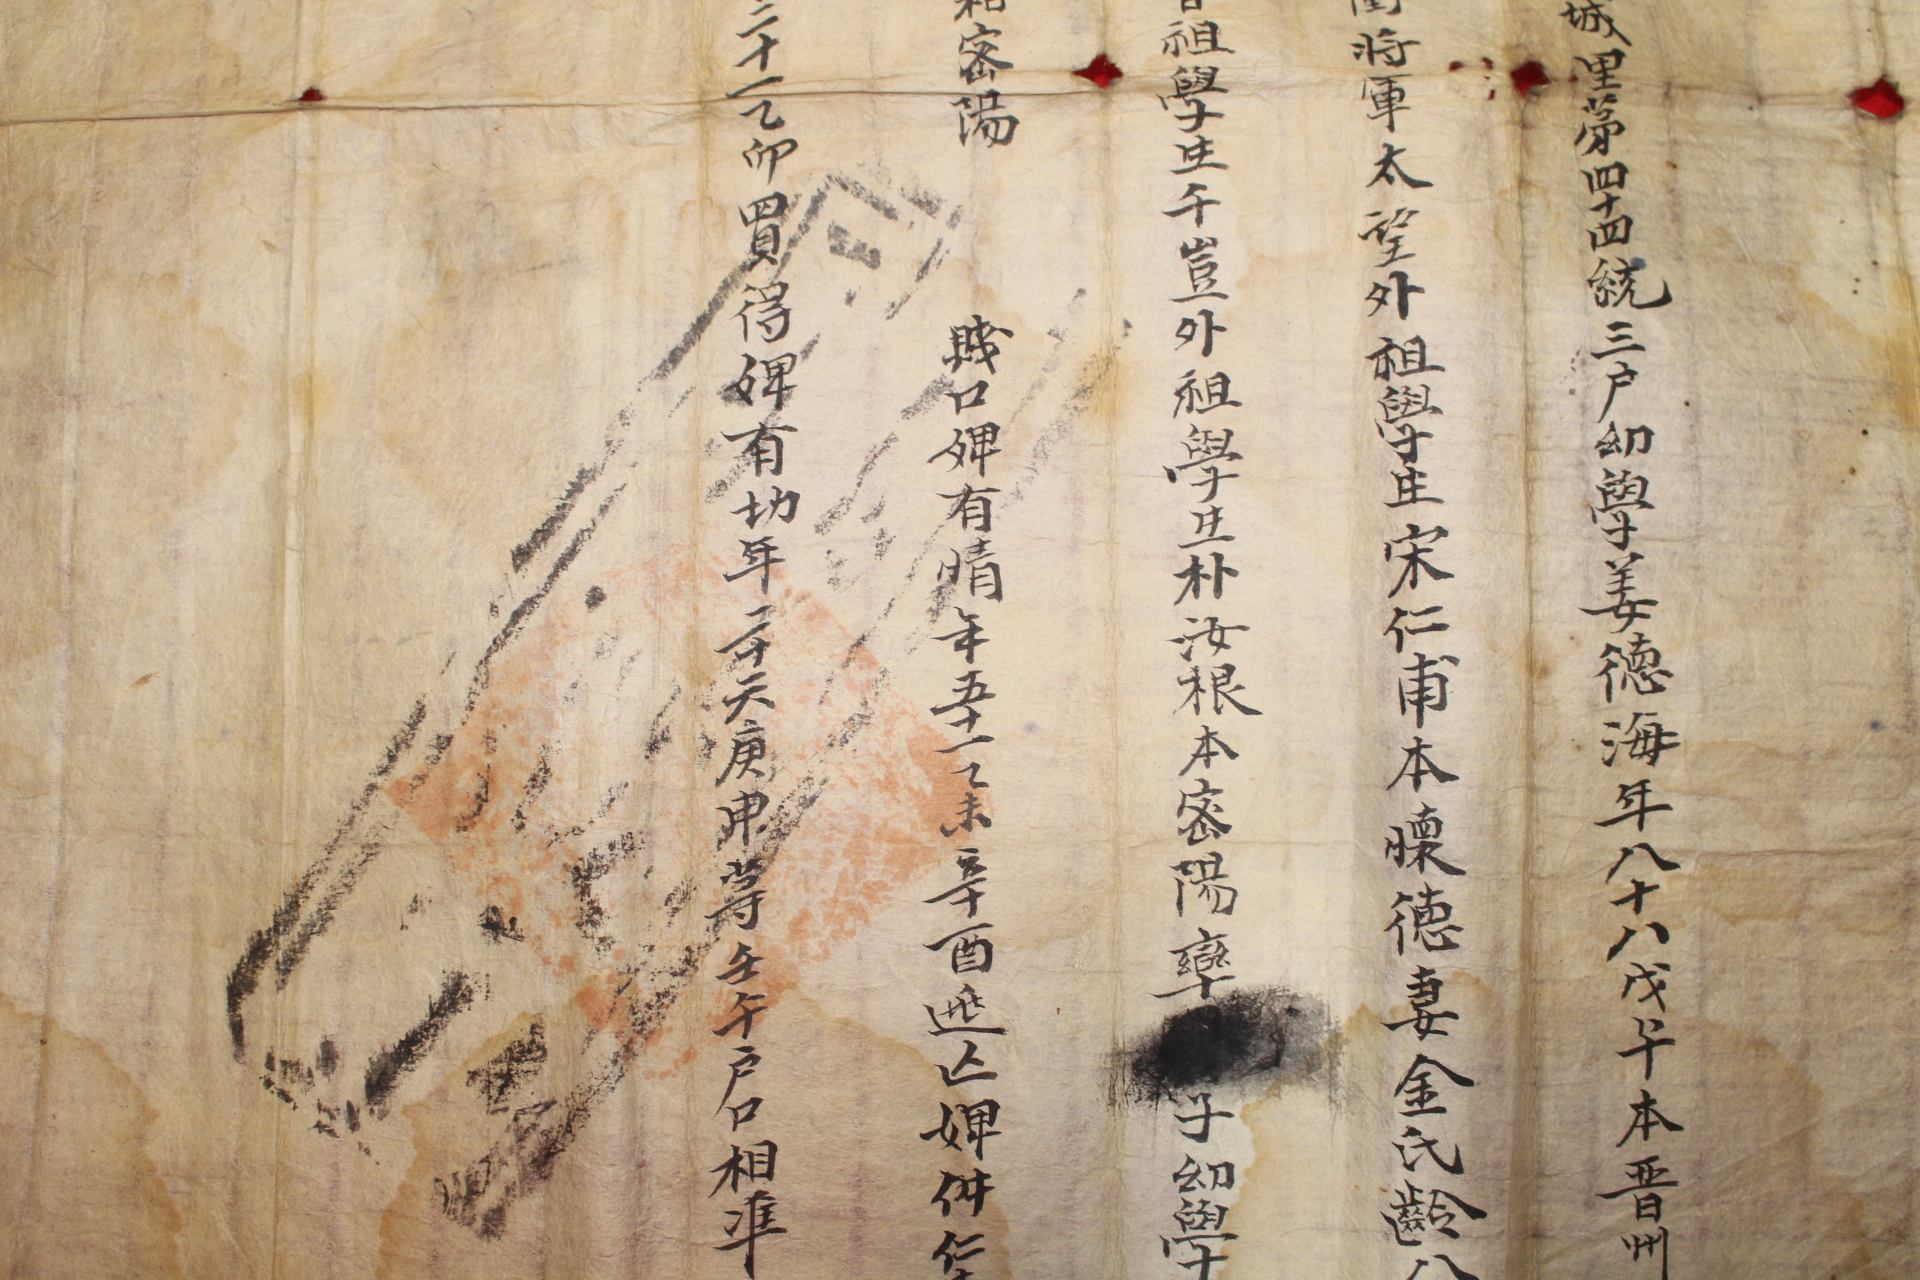 城里第四十四統三戶幼學姜德海年八十八戊午本晋州
將軍太望外祖學生宋仁甫本懷德妻金氏齡八
祖學生千豈外祖學生朴汝根本密陽率子幼學
密陽 賤口婢有晴年五十一乙未辛酉逃亡婢倂仁
二十一乙卯買得婢有切年二十六庚申等壬午戶口相準